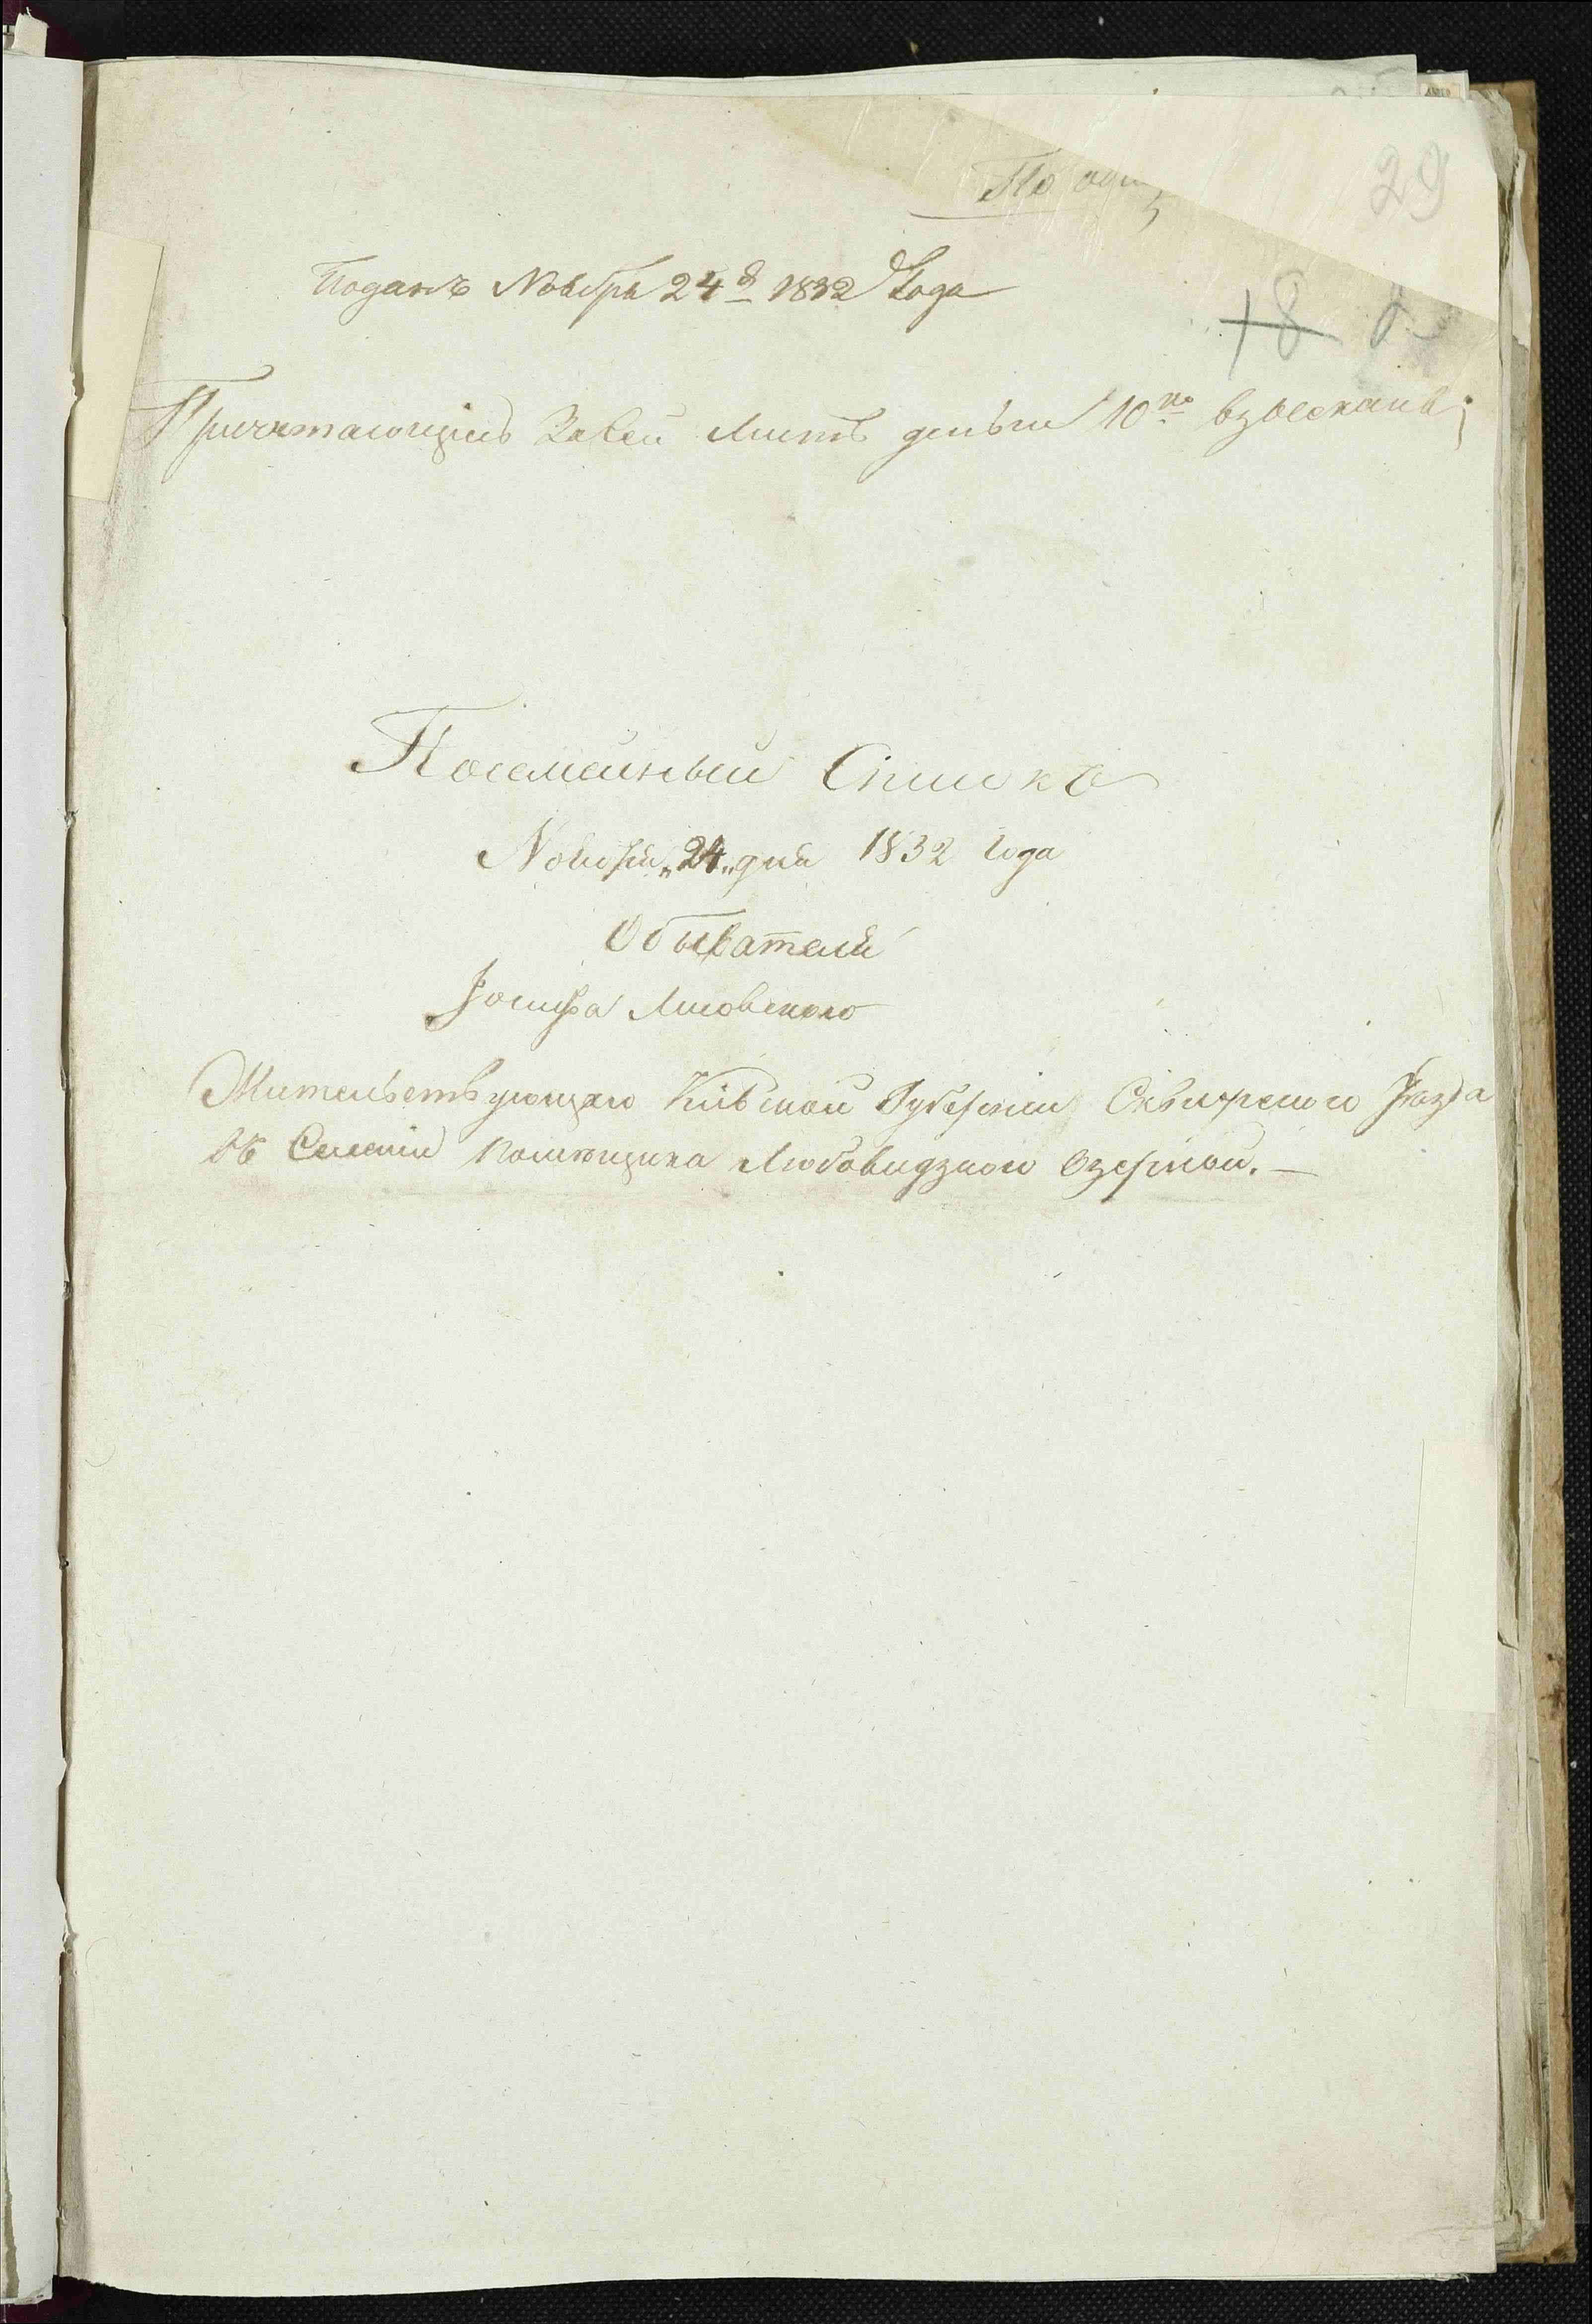 29
Поданъ Ноября 24 д 1832 Года
18
Причитающіесь За сей Листъ деньги 10 ко взысканы;
Посемейный Списокъ
Ноября „24„ дня 1832 года
Обывателя
Іосифа Лисовского
Жительствующаго Кіевской Губерніи Сквирского уезда
въ Селеніи помещика Любовидзкого Озерной.